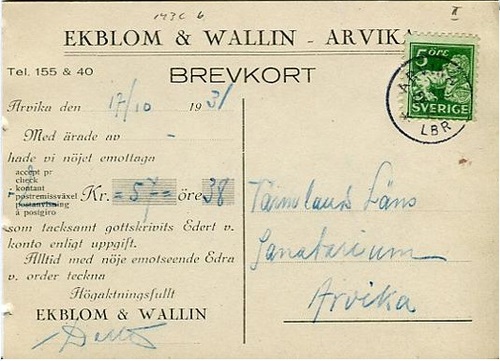 EKBLOM & WALLIN - ARVIKA
Tel. 155 & 40
BREVKORT
5 ÖRE
SVERIGE
LBR
Arvika den 17/10 1931
Med ärade av -
hade vi nöjet emottaga
accept pr
check
kontant
postremissväxel
postanvisning
å postgiro
Kr. öre 38
som tacksamt gottskrivits Edert v.
konto enligt uppgift.
Alltid med nöje emotseende Edra
v. order teckna
Högaktningsfullt
EKBLOM & WALLIN
Värmlands Läns
Sanatorium
Arvika